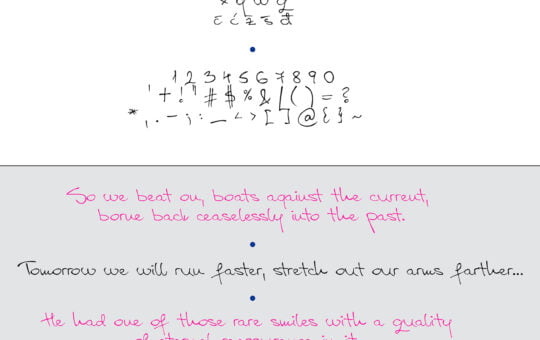 x q w y
č ć ž š đ
1 2 3 4 5 6 7 8 9 0
' + ! " # $ % & / ( ) = ?
* , . - ; : _ < > [ ] @ { } ~
So we beat on, boats against the current,
borne back ceaselessly into the past.
Tomorrow we will run faster, stretch out our arms farther...
He had one of those rare smiles with a quality